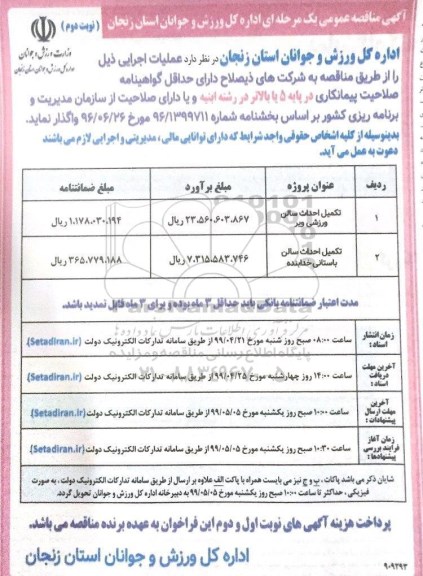 آگهی مناقصه عمومی یک مرحله ای اداره کل ورزش و جوانان استان زنجان (نوبت دوم)
وزارت ورزش و جوانان
اداره کل ورزش و جوانان استان زنجان
اداره کل ورزش و جوانان استان زنجان در نظر دارد عملیات اجرایی ذیل
را از طریق مناقصه به شرکت های ذیصلاح دارای حداقل گواهینامه
صلاحیت پیمانکاری در پایه ۵ یا بالاتر در رشته ابنیه و یا دارای صلاحیت از سازمان مدیریت و
برنامه ریزی کشور بر اساس بخشنامه شماره ۹۶/۱۳۹۹۷۱۱ مورخ ۹۶/۰۶/۲۶ واگذار نماید.
بدینوسیله از کلیه اشخاص حقوقی واجد شرایط که دارای توانایی مالی ، مدیریتی و اجرایی لازم می باشند
دعوت به عمل می آید.
ردیف عنوان پروژه مبلغ برآورد مبلغ ضمانتنامه
۱ تکمیل احداث سالن ورزشی ویر ۲۳.۵۶۰.۶۰۳.۸۶۷ ریال ۱.۱۷۸.۰۳۰.۱۹۴ ریال
۲ تکمیل احداث سالن باستانی خدابنده ۷.۳۱۵.۵۸۳.۷۴۶ ریال ۳۶۵.۷۷۹.۱۸۸ ریال
مدت اعتبار ضمانتنامه بانکی باید حداقل ۳ ماه بوده و برای ۳ ماه قابل تمدید باشد.
ParsNamadData
مرکز فرآوری اطلاعات پارس نماد داده ها
پایگاه اطلاع رسانی مناقصه و مزایده
زمان انتشار اسناد : ساعت ۰۸:۰۰ صبح روز شنبه مورخ ۹۹/۰۴/۲۱ از طریق سامانه تدارکات الکترونیک دولت (Setadiran.ir).
آخرین مهلت دریافت اسناد : ساعت ۱۴:۰۰ روز چهارشنبه مورخ ۹۹/۰۴/۲۵ از طریق سامانه تدارکات الکترونیک دولت (Setadiran.ir).
آخرین مهلت ارسال پیشنهادات : ساعت ۱۰:۰۰ صبح روز یکشنبه مورخ ۹۹/۰۵/۰۵ از طریق سامانه تدارکات الکترونیک دولت (Setadiran.ir).
زمان آغاز فرآیند بررسی پیشنهادها : ساعت ۱۰:۳۰ صبح روز یکشنبه مورخ ۹۹/۰۵/۰۵ از طریق سامانه تدارکات الکترونیک دولت (Setadiran.ir).
شایان ذکر می باشد پاکات ، ب و ج نیز می بایست همراه با پاکت الف علاوه بر ارسال از طریق سامانه تدارکات الکترونیک دولت ، به صورت
فیزیکی ، حداکثر تا ساعت ۱۰:۰۰ صبح روز یکشنبه مورخ ۹۹/۰۵/۰۵ به دبیرخانه اداره کل ورزش و جوانان تحویل گردد.
پرداخت هزینه آگهی های نوبت اول و دوم این فراخوان به عهده برنده مناقصه می باشد.
اداره کل ورزش و جوانان استان زنجان
۹۰۹۲۹۳